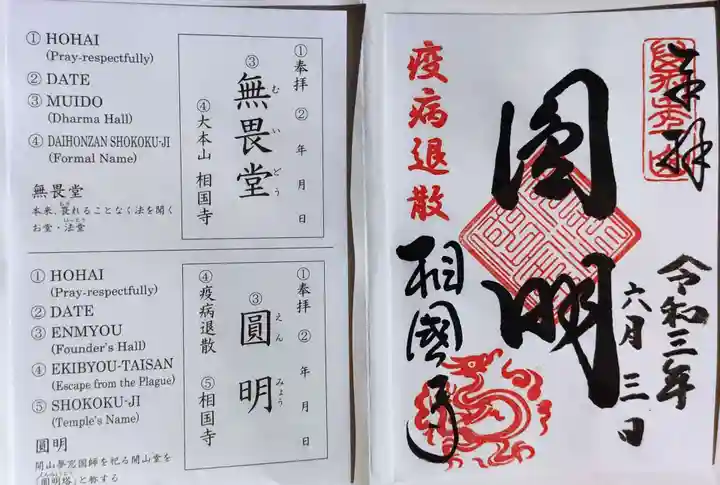 ① HOHAI
(Pray-respectfully)
② DATE
③ MUIDO
(Dharma Hall)
④ DAIHONZAN SHOKOKU-JI
(Formal Name)
無畏堂
本来、畏れることなく法を聞く
お堂・法堂
はっとう
①奉拝 ② 年 月 日
③
無畏堂
む い どう
④大本山 相国寺
① HOHAI
(Pray-respectfully)
② DATE
③ ENMYOU
(Founder's Hall)
④ EKIBYOU-TAISAN
(Escape from the Plague)
⑤ SHOKOKU-JI
(Temple's Name)
圓明
開山夢窓国師を祀る開山堂を
「圓明塔」と称する
①奉拝 ② 年 月 日
③
圓明
えん みょう
④疫病退散 ⑤相国寺
奉拝
令和三年
六月三日
圓明
疫病退散
相國寺